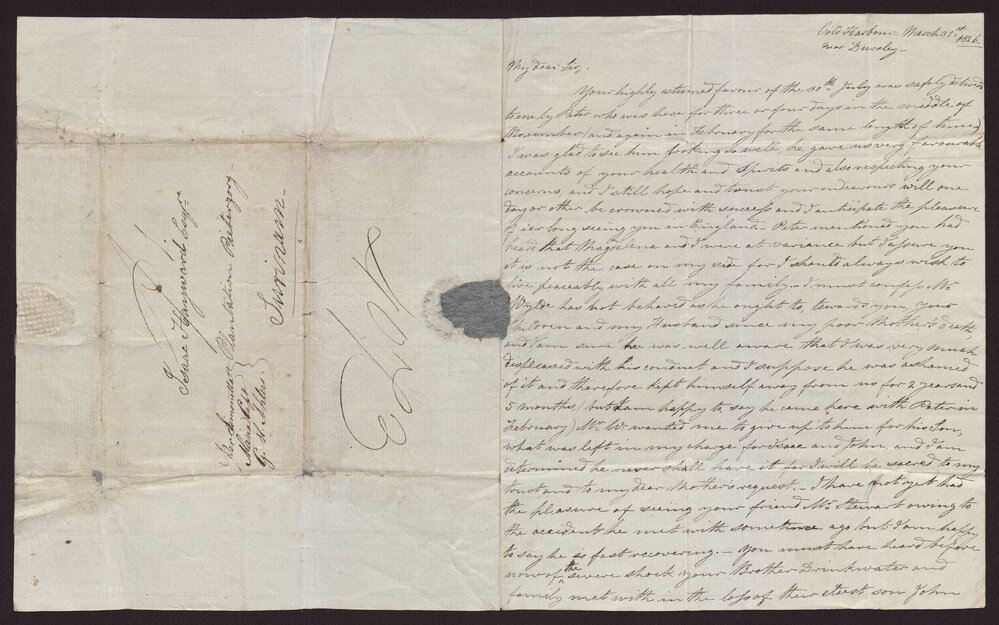 Isaac Hayward Esqr
Plantation Rietzorg
Surinam
Cold Harbour March 31st 1826
near Dursley
My dear Sir,
Your highly esteemed favour of the 30th July was safely deliverd
to me by Peter who was here for three or four days in the middle of
November (and again in February for the same length of time)
I was glad to see him looking so well, he gave us very favourable
accounts of your health and Spirits and also respecting your
concerns, and I still hope and trust your endeavours will one
day or other be crowned with success and I anticipate the pleasure
of ere long seeing you in England – Peter mentioned you had
heard that Magdelena and I were at variance but I assure you
it is not the case on my side for I should always wish to
live peaceably with all my family – I must confess Mr
Wylde has not behaved as he ought to, towards you your
children and my Husband since my poor Mother's death,
and I am sure he was well aware that I was very much
displeased with his conduct and I suppose he was ashamed
of it and therefore kept himself away from us for 2 years and
5 months, (but I am happy to say he came here with Peter in
February) Mr W. wanted me to give up to him for his Son,
what was left in my charge for Isaac and John, and I am
determined he never shall have it for I will be sacred to my
trust and to my dear Mother's request – I have not yet had
the pleasure of seeing your friend Mr Stewart owing to
the accident he met with sometime ago but I am happy
to say he is fast recovering – You must have heard before
now of the severe shock your Brother Drinkwater and
family met with in the loss of their eldest son John